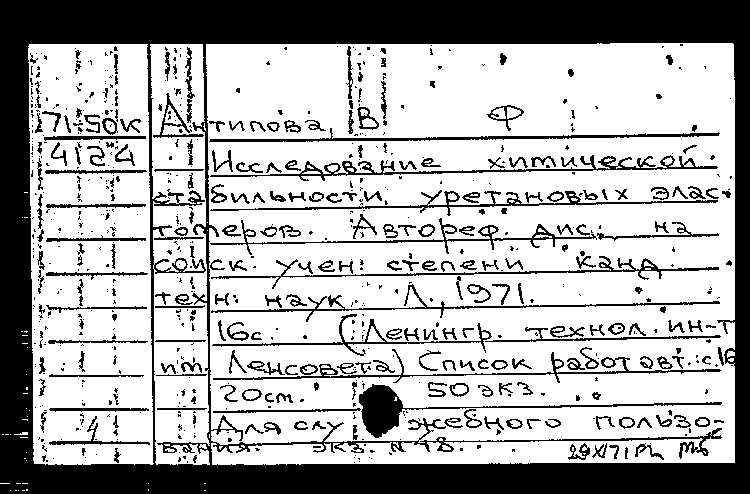 71-50к Антипова, В Ф
4124 Исследование химической
стабильности уретановых элас-
томеров. Автореф. дис. на
соиск. учен. степени канд.
техн. наук. Л., 1971.
16с. (Ленингр. технол. ин-т
им. Ленсовета) Список работ авт.: с.16
20см. 50 экз.
4 Для служебного пользо-
вания. экз. N 48.
29 XI 71